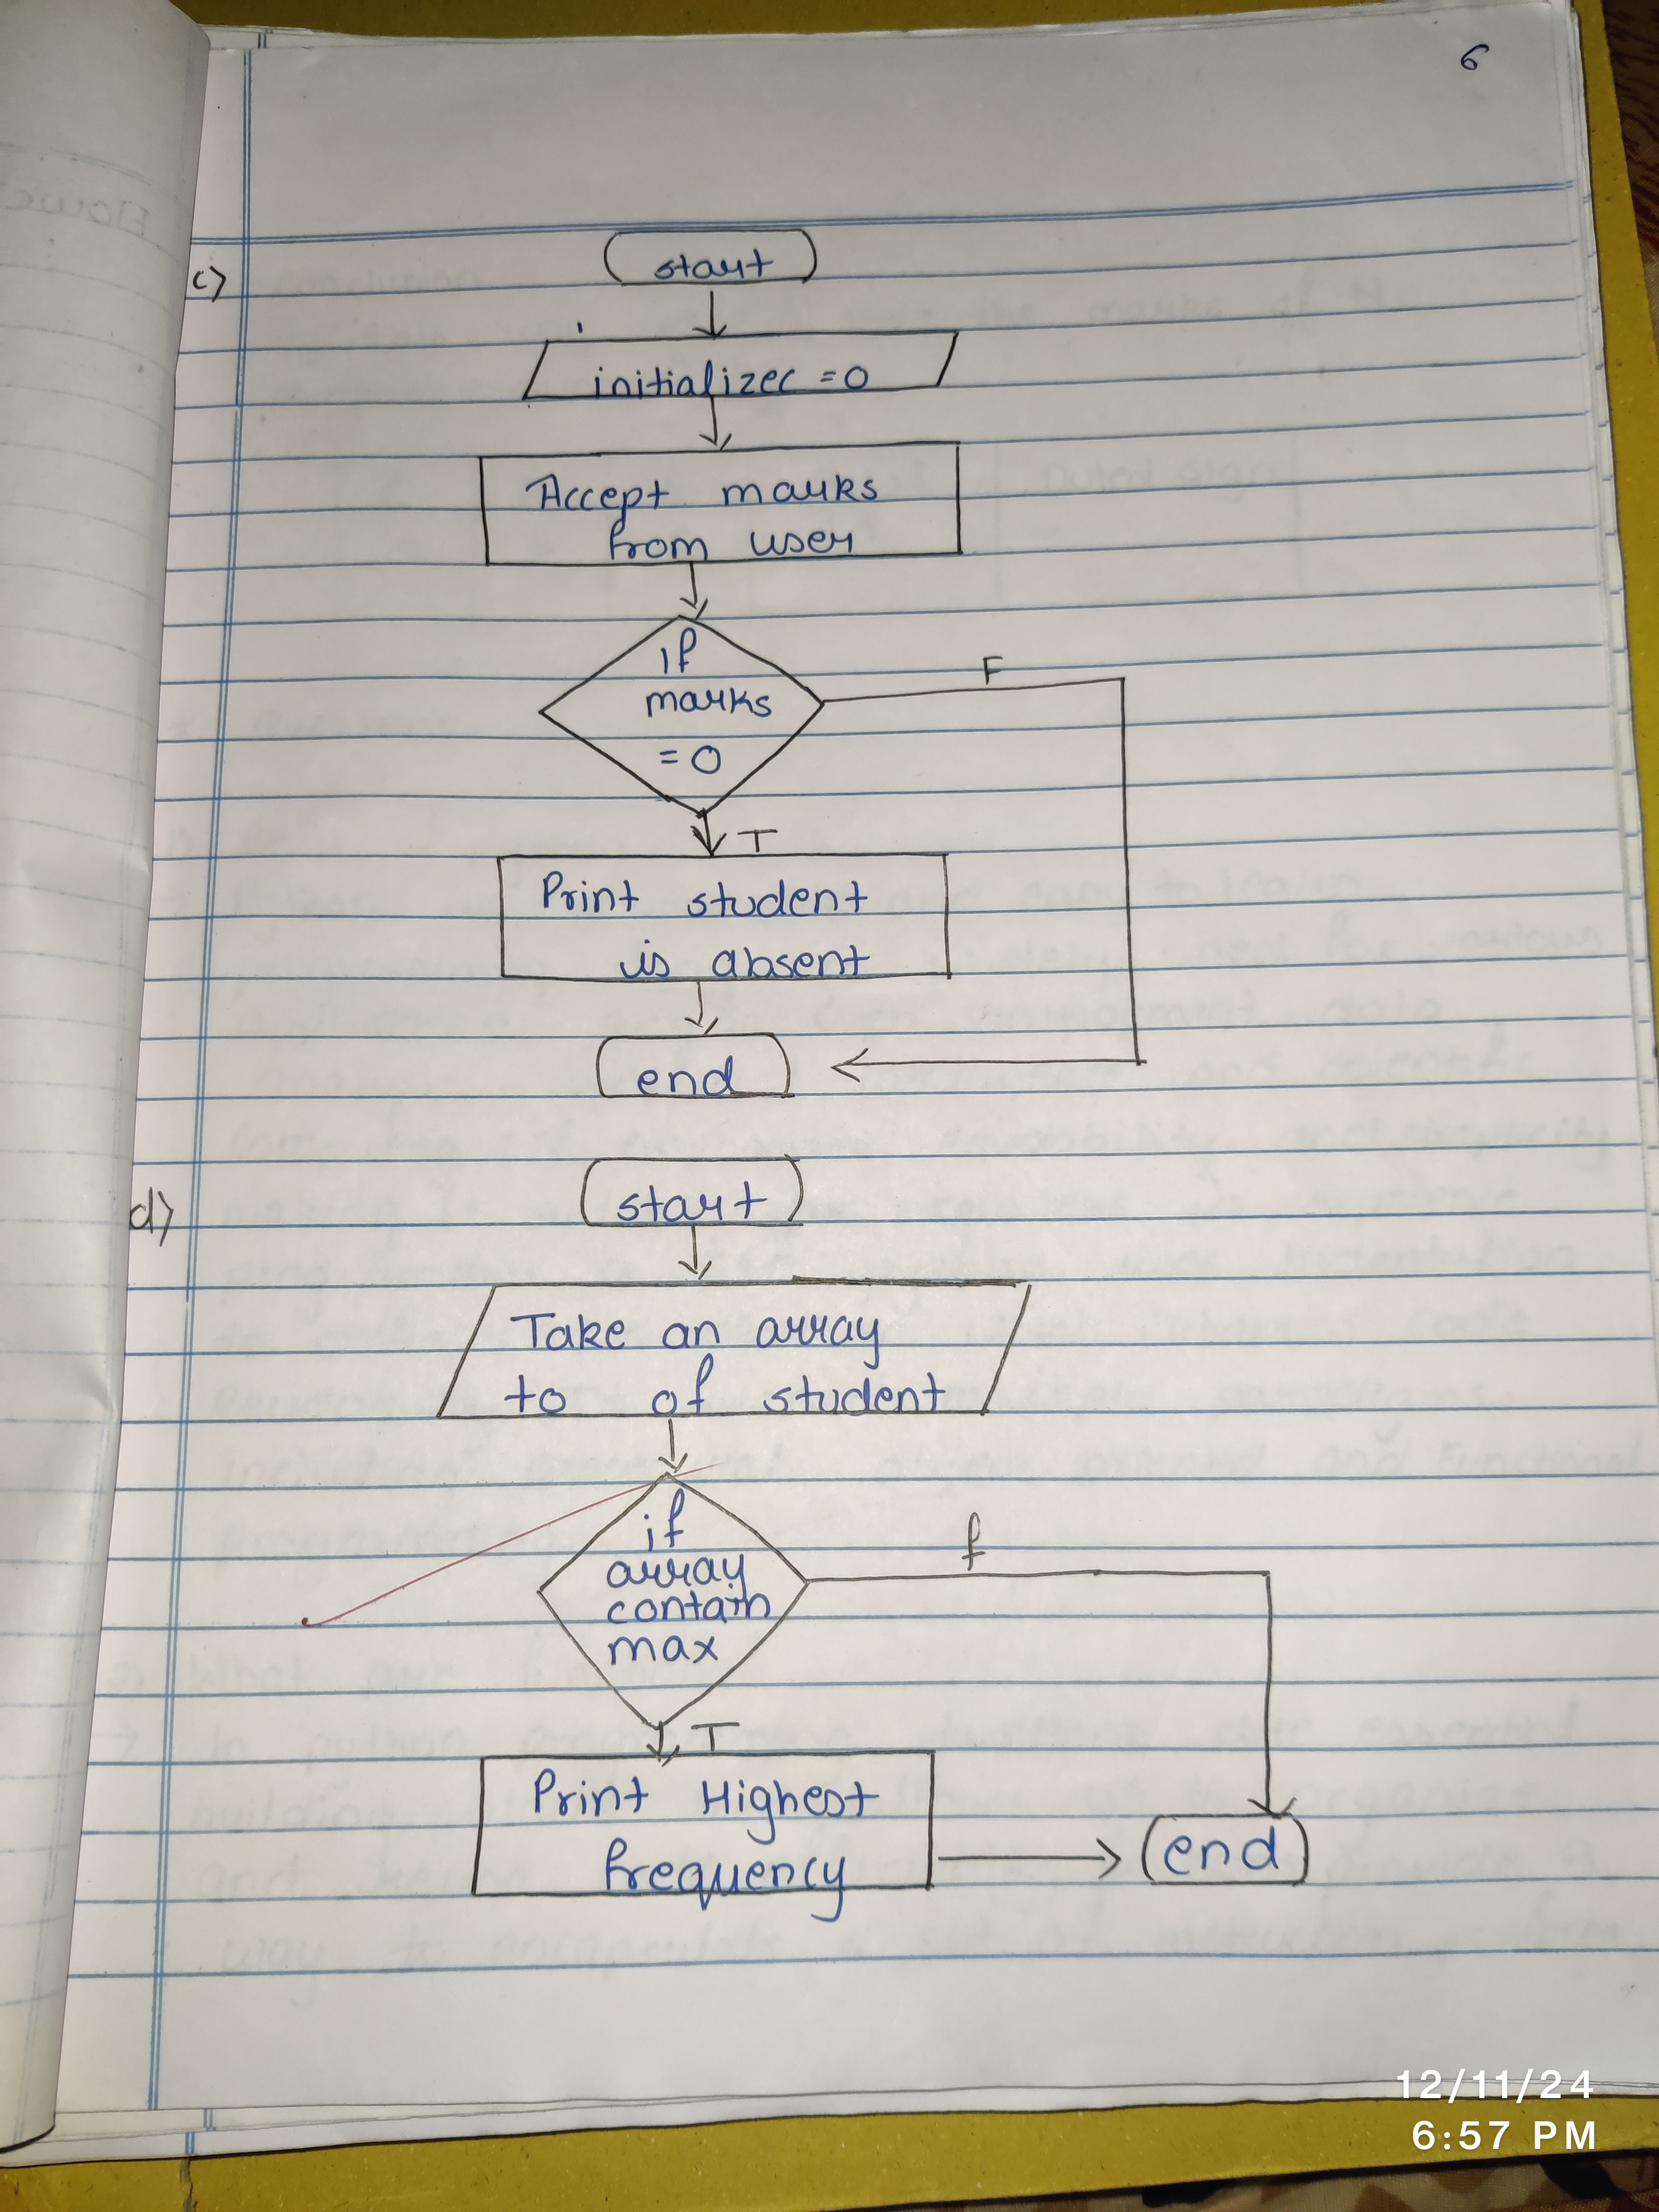 6
c)
start
initializec = 0
Accept marks
from user
if
marks
= 0
F
T
Print student
is absent
end
d)
start
Take an array
to of student
if
array
contain
max
f
T
Print Highest
frequency
end
12/11/24
6:57 PM